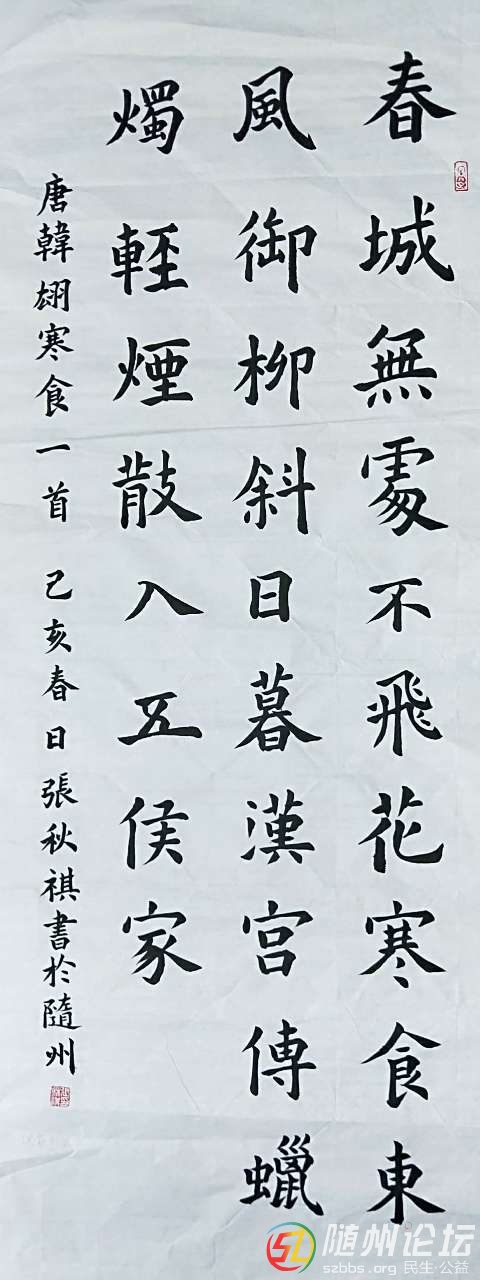 春城無處不飛花寒食東
風御柳斜日暮漢宮傳蠟
燭輕煙散入五侯家
唐韓翃寒食一首 己亥春日張秋祺書於隨州
随州论坛
szbbs.org 民生·公益